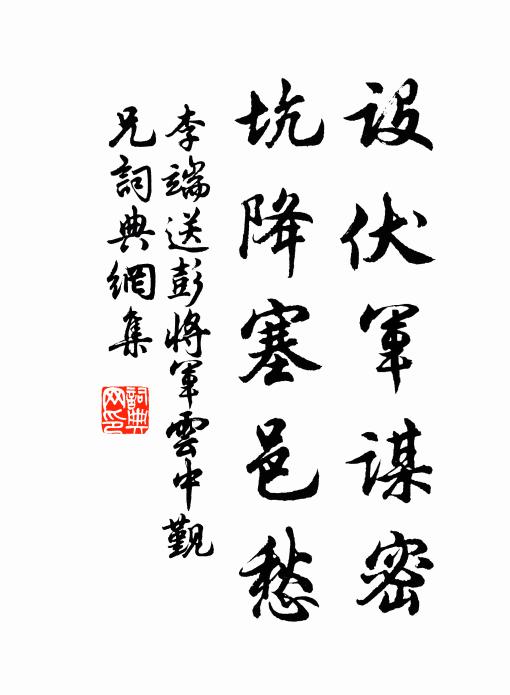 設伏軍謀密
坑降塞邑愁
李端送彭將軍雲中覲
兄詞典網集
詞典
网印